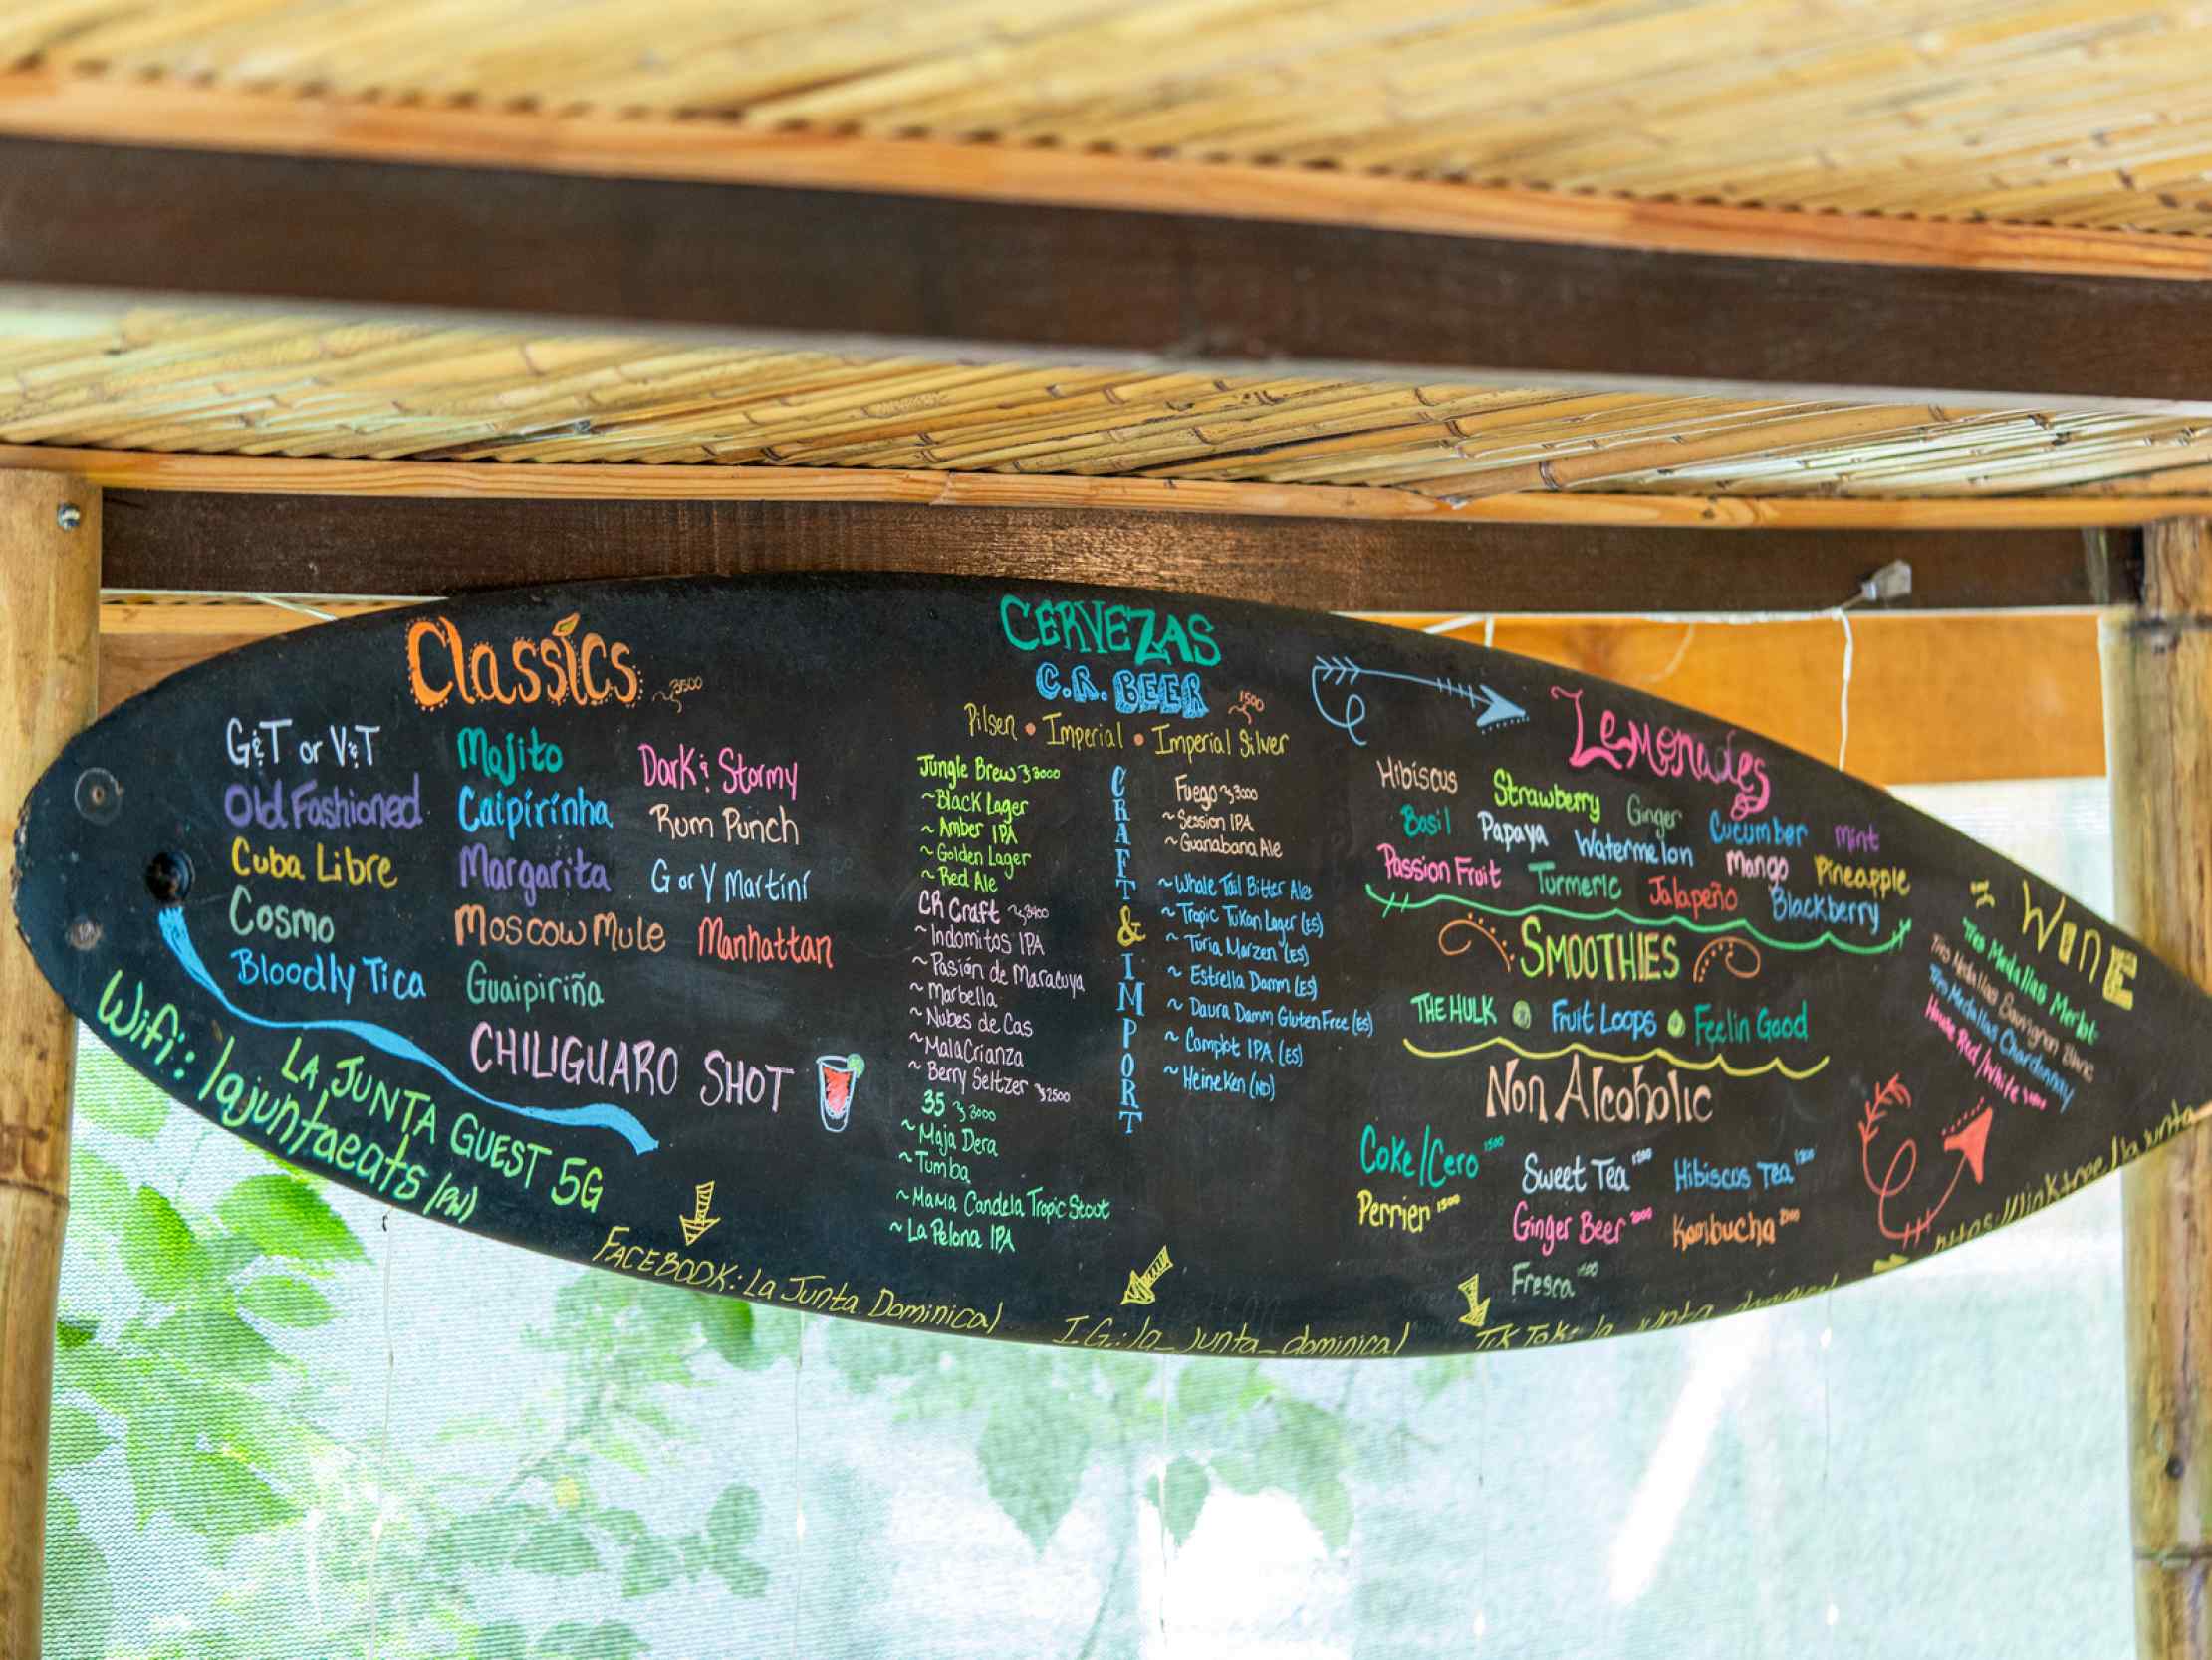 Classics ~3500
G&T or V&T
Old Fashioned
Cuba Libre
Cosmo
Bloodly Tica
Mojito
Caipirinha
Margarita
Moscow Mule
Guaipiriña
Dark & Stormy
Rum Punch
G or V Martini
Manhattan
CHILIGUARO SHOT
Wifi: LA JUNTA GUEST 5G
lajuntaeats (PW)
CERVEZAS
C.R. BEER ~1500
Pilsen • Imperial • Imperial Silver
Jungle Brew 3000
~Black Lager
~Amber IPA
~Golden Lager
~Red Ale
CR Craft
~Indomitos IPA
~Pasión de Maracuya
~Marbella
~Nubes de Cas
~MalaCrianza
~Berry Seltzer 2500
35 3000
~Maja Dera
~Tumba
~Mama Candela Tropic Stout
~La Pelona IPA
CRAFT & IMPORT
Fuego 3000
~Session IPA
~Guanabana Ale
~Whale Tail Bitter Ale
~Tropic Tukan Lager (ES)
~Turia Marzen (ES)
~Estrella Damm (ES)
~Daura Damm Gluten Free (ES)
~Complot IPA (ES)
~Heineken (ND)
Lemonades
Hibiscus Strawberry Ginger Cucumber Mint
Basil Papaya Watermelon Mango Pineapple
Passion Fruit Turmeric Jalapeño Blackberry
SMOOTHIES
THE HULK • Fruit Loops • Feelin Good
Non Alcoholic
Coke/Cero 1500 Sweet Tea Hibiscus Tea
Perrier 1500 Ginger Beer Kombucha
Fresca
WINE
Tres Medallas Merlot
Tres Medallas Sauvignon Blanc
Tres Medallas Chardonnay
House Red/White
FACEBOOK: La Junta Dominical
I.G.: la_junta_dominical
TikTok: la_junta_dominical
https://linktree/la junta